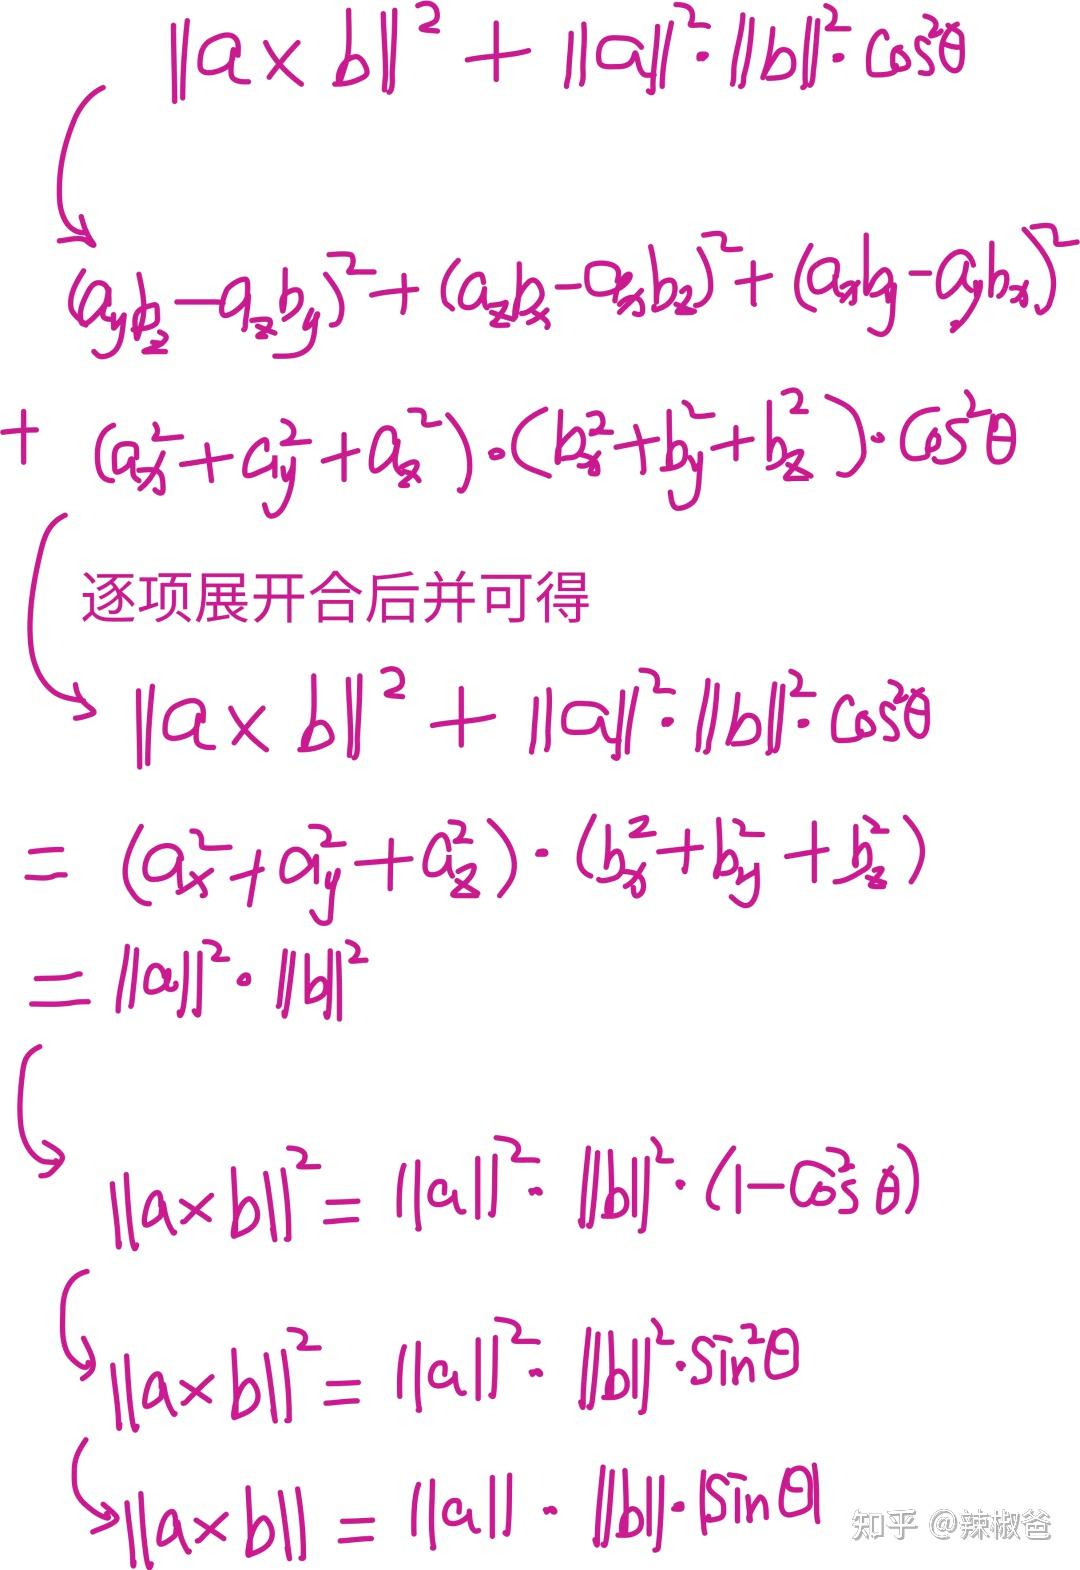 ||a × b||² + ||a||² · ||b||² · cos²θ
(a_y b_z − a_z b_y)² + (a_z b_x − a_x b_z)² + (a_x b_y − a_y b_x)²
+ (a_x² + a_y² + a_z²) · (b_x² + b_y² + b_z²) · cos²θ
逐项展开合后并可得
||a × b||² + ||a||² · ||b||² · cos²θ
= (a_x² + a_y² + a_z²) · (b_x² + b_y² + b_z²)
= ||a||² · ||b||²
||a × b||² = ||a||² · ||b||² · (1 − cos²θ)
||a × b||² = ||a||² · ||b||² · sin²θ
||a × b|| = ||a|| · ||b|| · |sinθ|
知乎 @辣椒爸